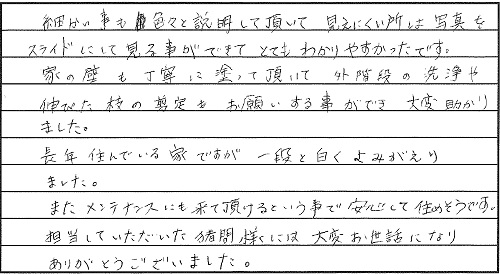 細かい事も色々と説明して頂いて 見えにくい所は写真を
スライドにして見る事ができてとてもわかりやすかったです。
家の壁も丁寧に塗って頂いて 外階段の洗浄や
伸びた枝の剪定もお願いする事ができ 大変助かり
ました。
長年住んでいる家ですが 一段と白くよみがえり
ました。
またメンテナンスにも来て頂けるという事で安心して住めそうです。
担当していただいた猪間様には大変お世話になり
ありがとうございました。